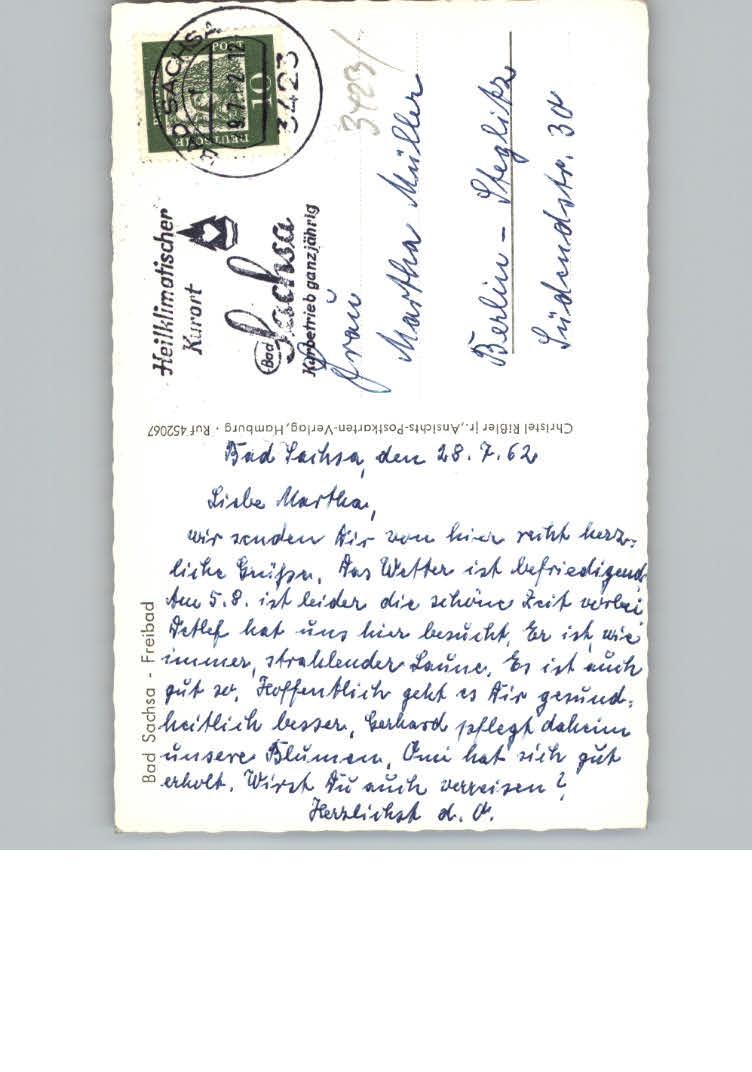 DEUTSCHE
POST
10
BAD SACHSA
3423
3423/
Heilklimatischer
Kurort
Bad Sachsa
Kurbetrieb ganzjährig
Frau
Martha Müller
Berlin - Steglitz
Südendstr. 30
Christel Rißler jr., Ansichts-Postkarten-Verlag, Hamburg · Ruf 452067
Bad Sachsa - Freibad
Bad Sachsa, den 28.7.62
Liebe Martha,
wir senden Dir von hier recht herz-
liche Grüße. Das Wetter ist befriedigend.
Am 5.8. ist leider die schöne Zeit vorbei.
Detlef hat uns hier besucht. Er ist, wie
immer, strahlender Laune. Es ist auch
gut so. Hoffentlich geht es Dir gesund-
heitlich besser. Gerhard pflegt daheim
unsere Blumen. Omi hat sich gut
erholt. Wirst Du auch verreisen?
Herzlichst d. O.